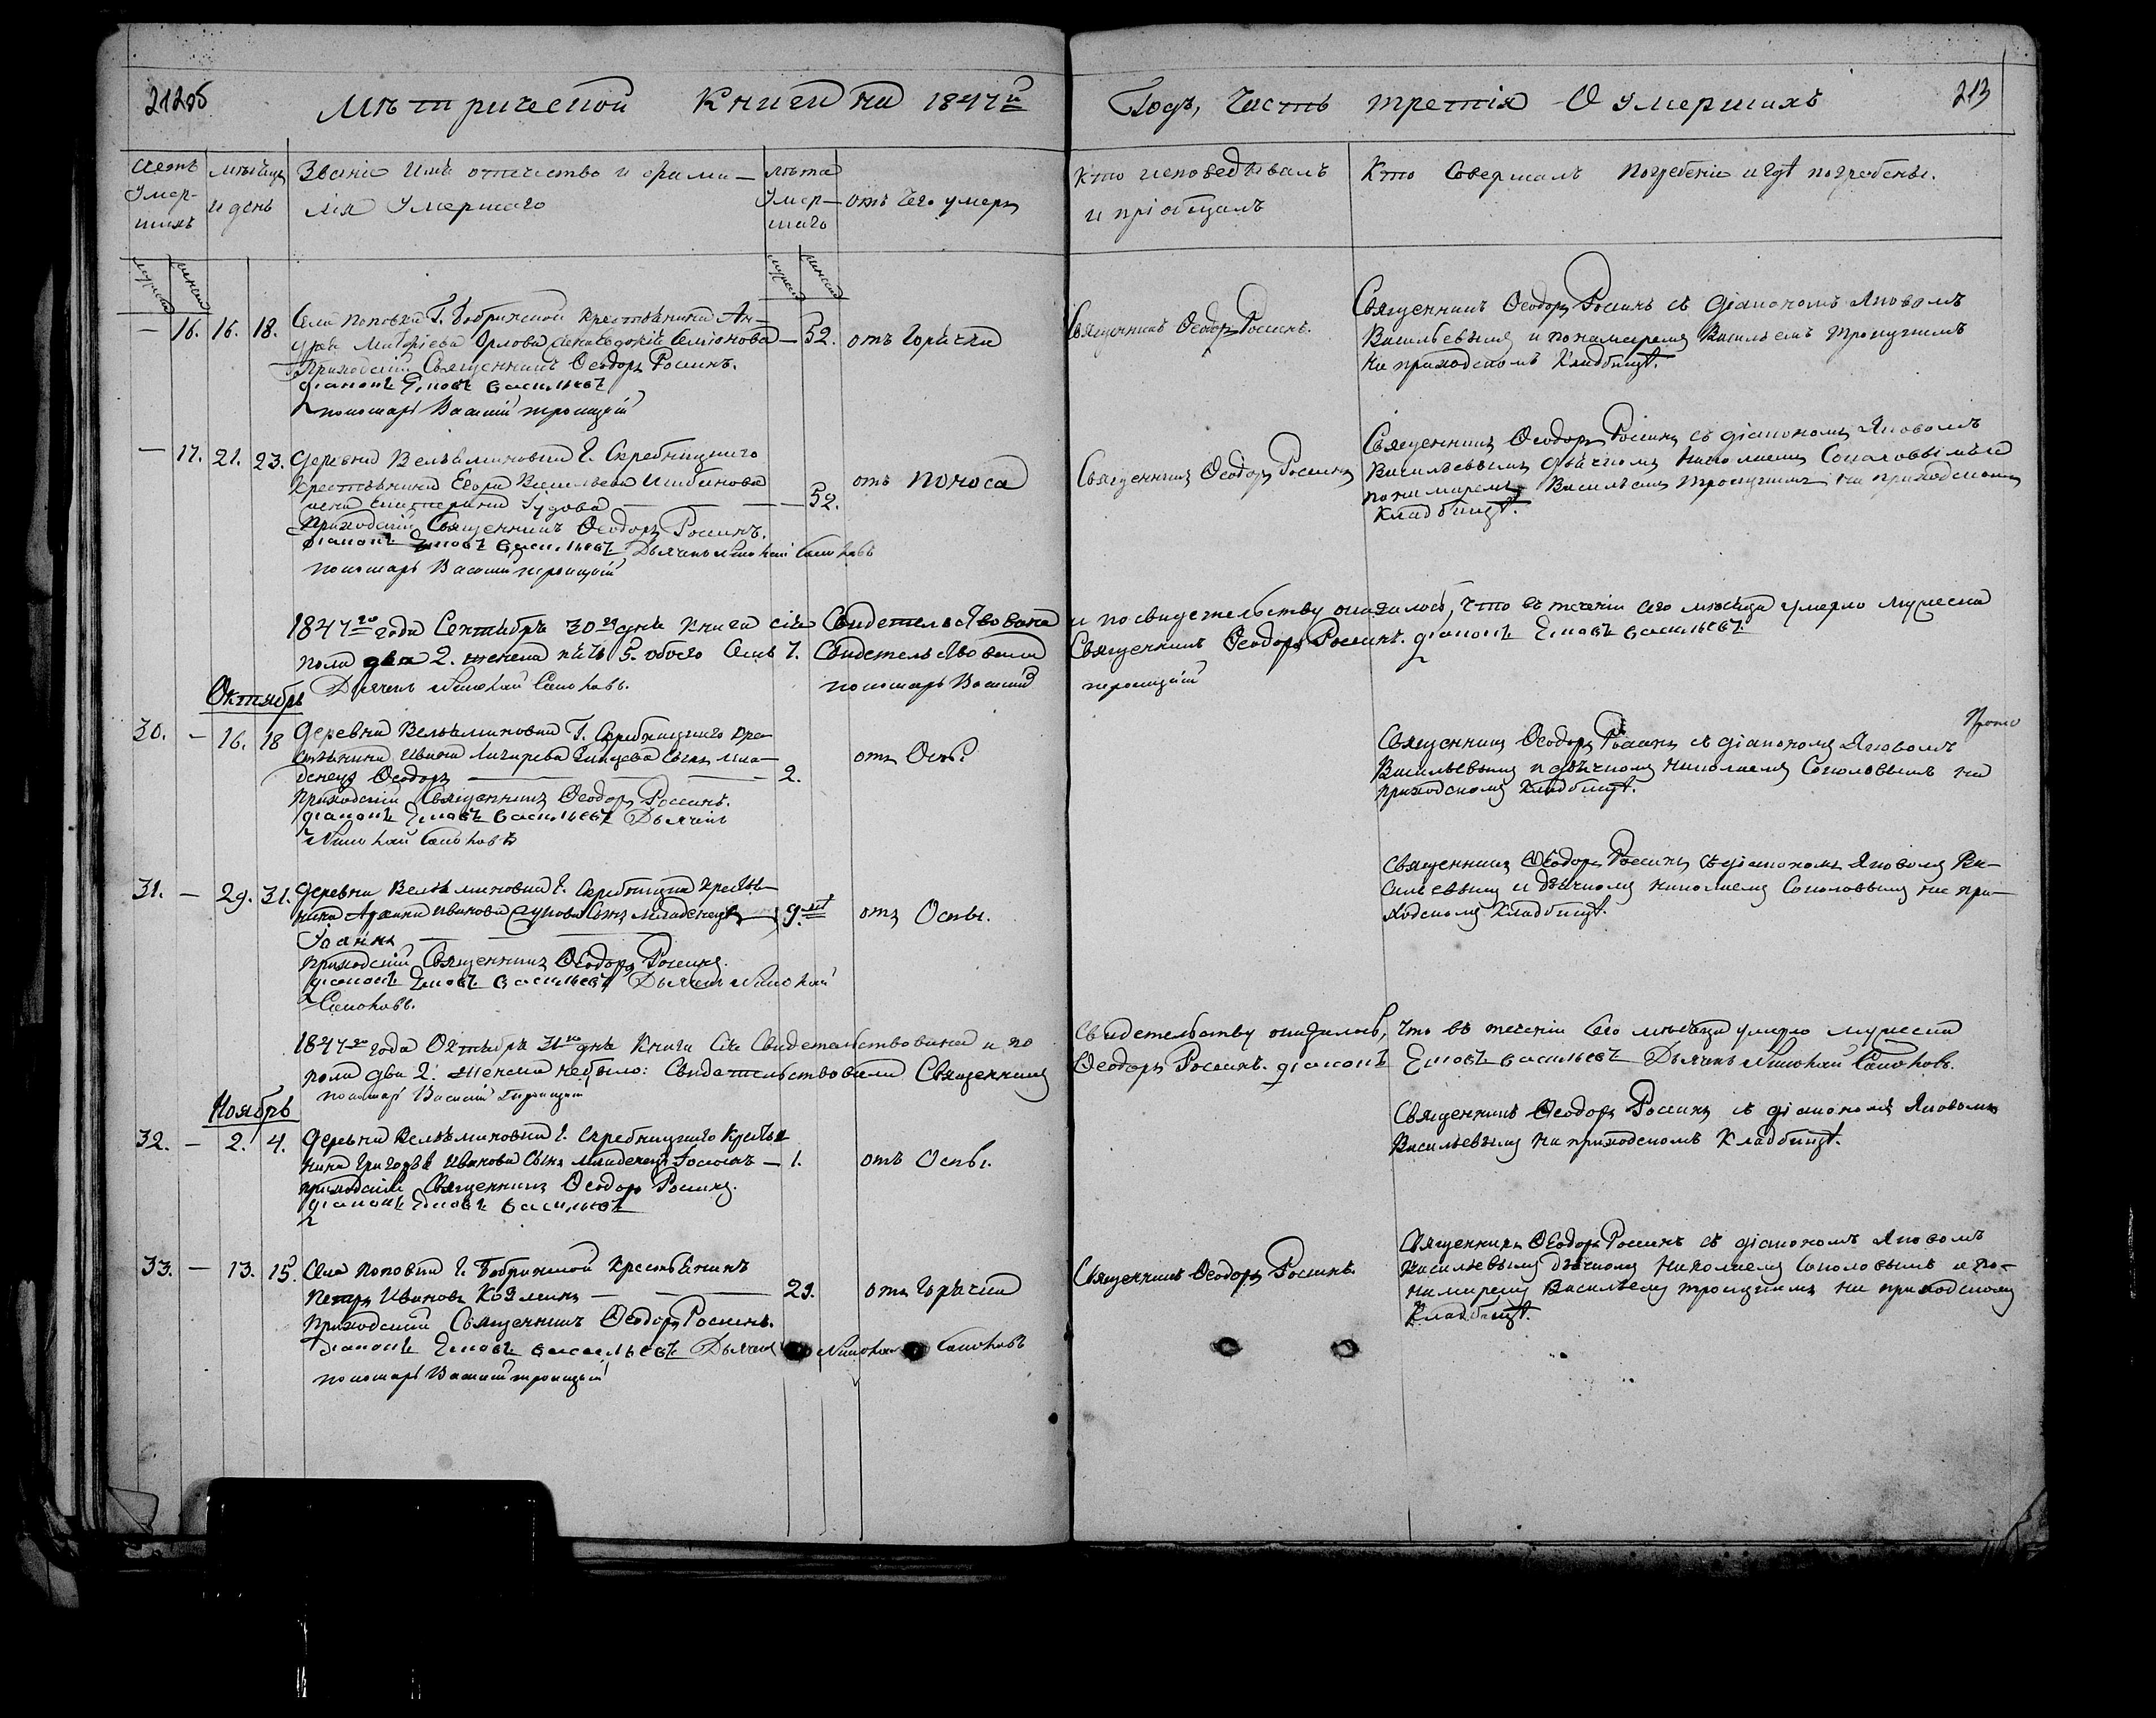 Метрической Книги на 1847й
Годъ, Часть третія О Умершихъ
213
Счетъ Умер-шихъ
Мѣсяцъ и день
Званіе Имя отечество и фами-
лія Умершаго
лѣта Умер-шаго
отъ чего умеръ
Кто исповѣдывалъ
и пріобщалъ
Кто Совершалъ Погребеніе и гдѣ погребены.
— 16. 16. 18.
Села Поповки Г. Бобринской крестьянина Ан-
Орлова жена Евдокія Семіонова — 52.
Приходскій Священникъ Ѳеодоръ Росинъ.
діаконъ Яковъ Васильевъ
пономарь Василій Троицкій
отъ Горячки
Священникъ Ѳеодоръ Росинъ.
Священникъ Ѳеодоръ Росинъ съ діакономъ Яковомъ
Васильевымъ и пономаремъ Васильемъ Троицкимъ
на приходскомъ Кладбищѣ.
— 17. 21. 23.
Деревни Вельяминовки Г. Скребницкаго
Крестьянина Егора Васильева
жена Екатерина — 52.
Приходскій Священникъ Ѳеодоръ Росинъ.
діаконъ Яковъ Васильевъ Дьячекъ Николай Соколовъ
пономарь Василій Троицкій
отъ поноса
Священникъ Ѳеодоръ Росинъ
Священникъ Ѳеодоръ Росинъ съ діакономъ Яковомъ
Васильевымъ дьячкомъ Николаемъ Соколовымъ и
пономаремъ Васильемъ Троицкимъ на приходскомъ
Кладбищѣ.
1847го года Сентября 30го дня Книга сія Свидетельствована и по свидетельству оказалось, что въ теченіи сего мѣсяца умерло мужеска
пола два 2. женска пять 5. обоего Семь 7. Свидетельствовали Священникъ Ѳеодоръ Росинъ. діаконъ Яковъ Васильевъ
Дьячекъ Николай Соколовъ. пономарь Василій Троицкій
Октябрь
30. — 16. 18
Деревни Вельяминовки Г. Скребницкаго кре-
стьянина Ивана сынъ мла-
денецъ Ѳеодоръ — 2.
Приходскій Священникъ Ѳеодоръ Росинъ.
діаконъ Яковъ Васильевъ Дьячекъ
Николай Соколовъ
отъ Оспы
Священникъ Ѳеодоръ Росинъ съ діакономъ Яковомъ
Васильевымъ и дьячкомъ Николаемъ Соколовымъ на
приходскомъ Кладбищѣ.
31. — 29. 31.
Деревни Вельяминовки Г. Скребницкаго крестья-
нина Иванова Сынъ младенецъ — 9.
Іоаннъ
Приходскій Священникъ Ѳеодоръ Росинъ.
діаконъ Яковъ Васильевъ Дьячекъ Николай
Соколовъ.
отъ Оспы.
Священникъ Ѳеодоръ Росинъ съ діакономъ Яковомъ Ва-
сильевымъ и дьячкомъ Николаемъ Соколовымъ на при-
ходскомъ Кладбищѣ.
1847го года Октября 31го дня Книга Сія Свидетельствована и по Свидетельству оказалось, что въ теченіи Сего мѣсяца умерло мужеска
пола два 2. женска небыло: Свидетельствовали Священникъ Ѳеодоръ Росинъ. діаконъ Яковъ Васильевъ Дьячекъ Николай Соколовъ.
пономарь Василій Троицкій
Ноябрь
32. — 2. 4.
Деревни Вельяминовки Г. Скребницкаго Крестья-
нина Григорья Иванова Сынъ младенецъ — 1.
Приходскій Священникъ Ѳеодоръ Росинъ.
діаконъ Яковъ Васильевъ
отъ Оспы.
Священникъ Ѳеодоръ Росинъ съ діакономъ Яковомъ
Васильевымъ на приходскомъ Кладбищѣ.
33. — 13. 15.
Села Поповки Г. Бобринской Крестьянинъ
Петръ Ивановъ Козминъ — 29.
Приходскій Священникъ Ѳеодоръ Росинъ.
діаконъ Яковъ Васильевъ Дьячекъ Николай Соколовъ
пономарь Василій Троицкій
отъ Горячки
Священникъ Ѳеодоръ Росинъ.
Священникъ Ѳеодоръ Росинъ съ діакономъ Яковомъ
Васильевымъ дьячкомъ Николаемъ Соколовымъ и по-
номаремъ Васильемъ Троицкимъ на приходскомъ
Кладбищѣ.